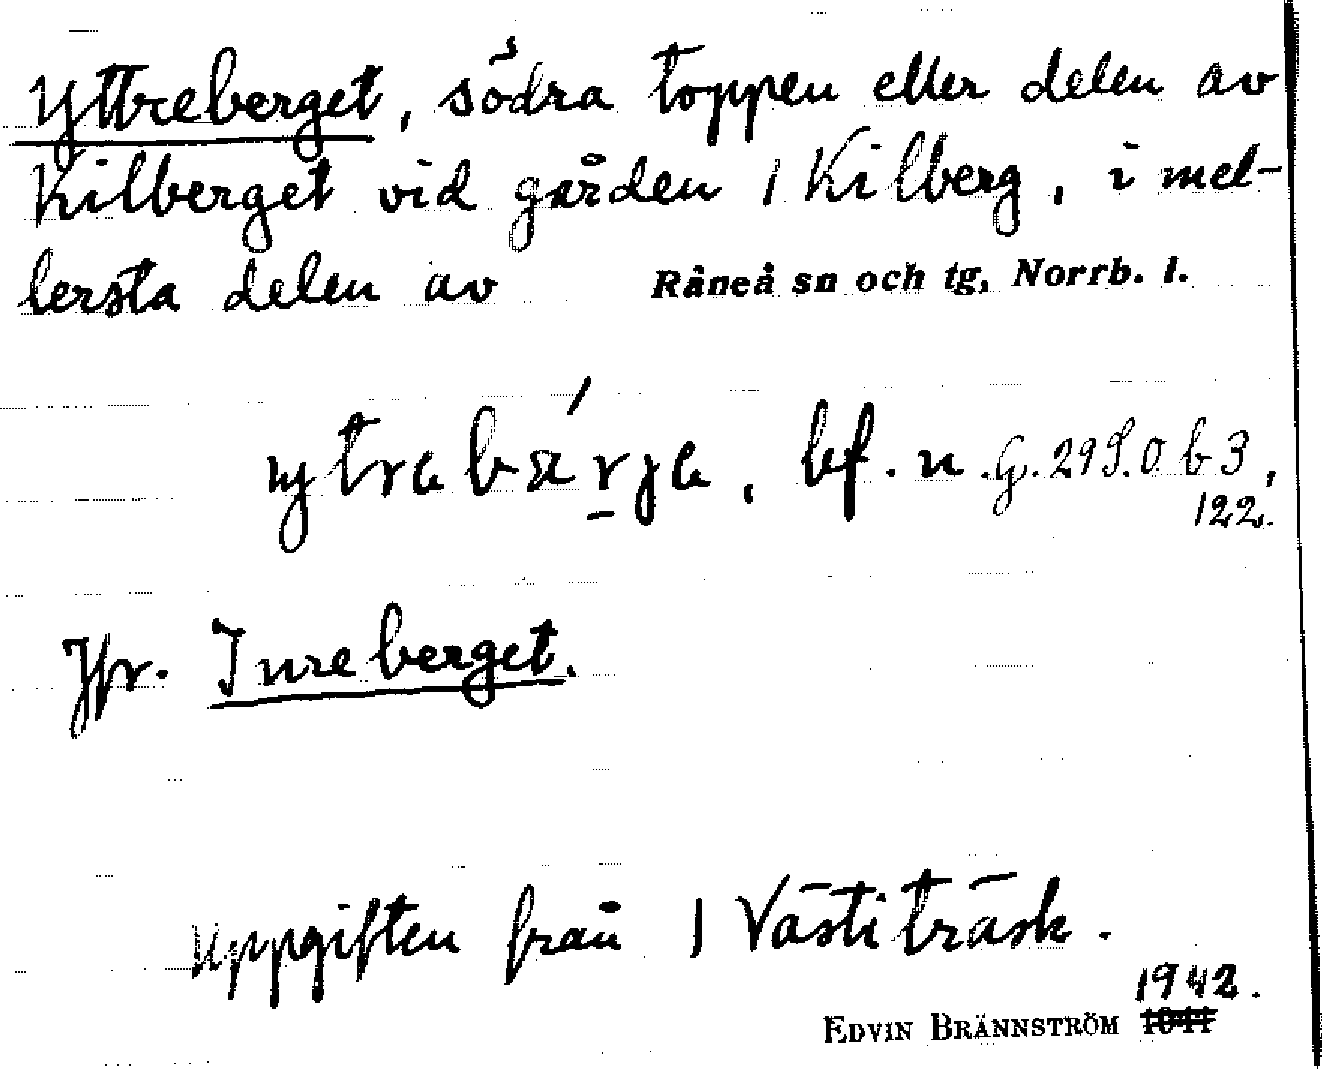 Yttreberget, södra toppen eller delen av
Kilberget vid gården 1 Kilberg, i mel-
lersta delen av Råneå sn och tg, Norrb. l.
ytrabä́r̲ja, bf. n. G. 29 S. 0 b 3,
122.
Jfr. Inreberget.
Uppgiften från 1 Västiträsk.
1942.
EDVIN BRÄNNSTRÖM 1941